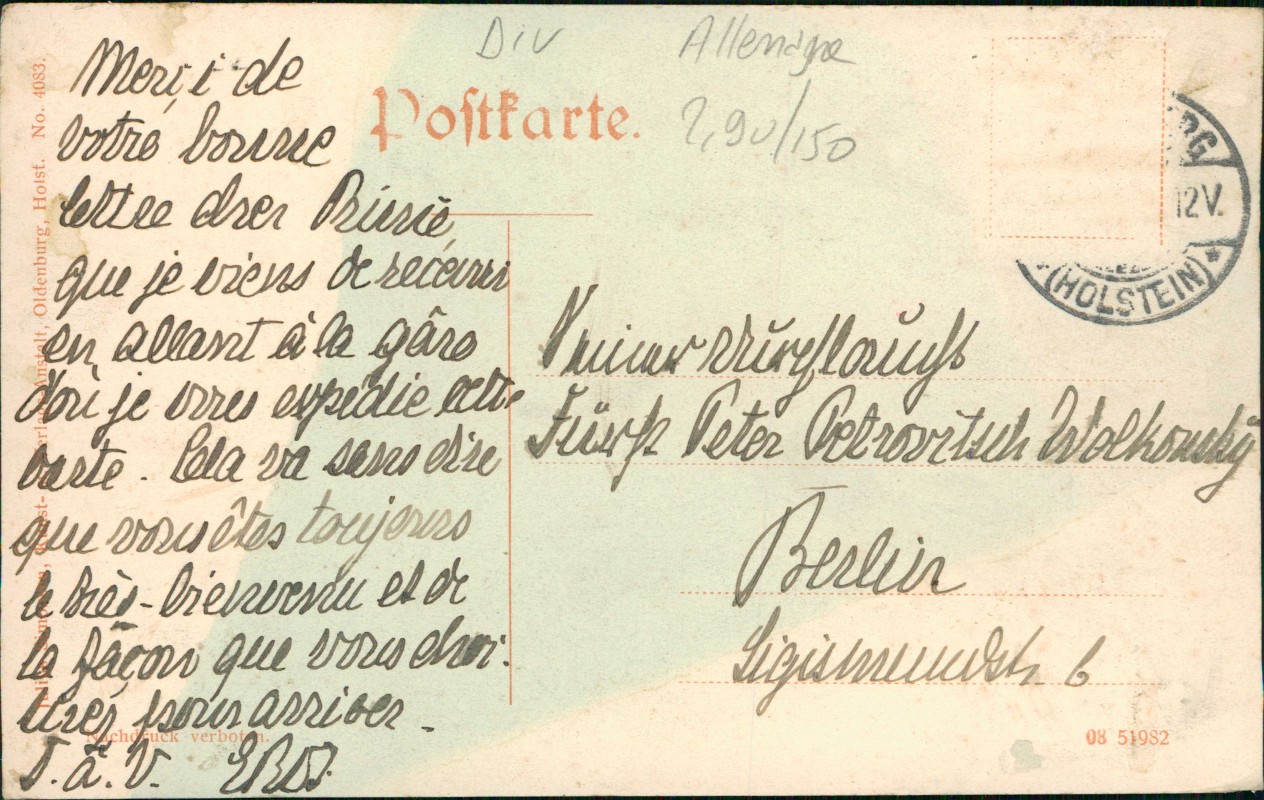 Div
Allemagne
2,90/150
Postkarte.
RG
12V.
(HOLSTEIN)
Merçi de
votre bonne
lettre cher Prince
que je viens de recevoir
en allant à la gâre
d'où je vous expédie cette
carte. Cela va sans dire
que vous êtes toujours
le très-bienvenu et de
la façon que vous choi-
sirez pour arriver -
T. à. V.
Seiner Durchlaucht
Fürst Peter Petrovitsch Wolkonsky
Berlin
Sigismundstr. 6
Oldenburg, Holst. No. 4083.
Nachdruck verboten.
08 51982